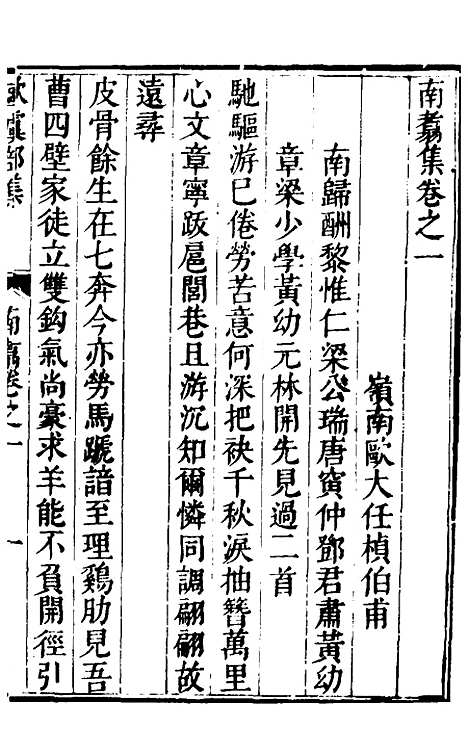 南翥集卷之一
嶺南歐大任楨伯甫
南歸酬黎惟仁梁公瑞唐寅仲鄧君肅黃幼
章梁少學黃幼元林開先見過二首
馳驅游巳倦勞苦意何深把袂千秋淚抽簪萬里
心文章寧跋扈閭巷且游沉知爾憐同調翩翩故
遠尋
皮骨餘生在七奔今亦勞馬蹏諳至理鷄肋見吾
曹四壁家徒立雙鈎氣尚豪求羊能不負開徑引
歐虞部集
南翥卷之一
一